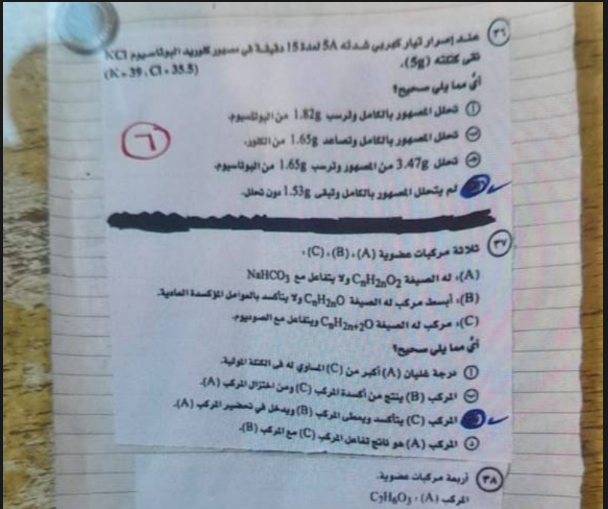 ٣٦
عند إمرار تيار كهربي شدته 5A لمدة 15 دقيقة في مصهور كلوريد البوتاسيوم KCl
نقى كتلته (5g).
(K = 39 , Cl = 35.5)
أيٌ مما يلى صحيح؟
أ تحلل المصهور بالكامل وترسب 1.82g من البوتاسيوم.
ب تحلل المصهور بالكامل وتصاعد 1.65g من الكلور.
ج تحلل 3.47g من المصهور وترسب 1.65g من البوتاسيوم.
لم يتحلل المصهور بالكامل وتبقى 1.53g دون تحلل.
٦
٣٧ ثلاثة مركبات عضوية (A) ، (B) ، (C) :
(A): له الصيغة CnH2nO2 ولا يتفاعل مع NaHCO3
(B): أبسط مركب له الصيغة CnH2nO ولا يتأكسد بالعوامل المؤكسدة العادية.
(C): مركب له الصيغة CnH2n+2O ويتفاعل مع الصوديوم.
أيٌ مما يلى صحيح؟
أ درجة غليان (A) أكبر من (C) المساوي له فى الكتلة المولية.
ب المركب (B) ينتج من أكسدة المركب (C) ومن اختزال المركب (A).
المركب (C) يتأكسد ويعطى المركب (B) ويدخل في تحضير المركب (A).
د المركب (A) هو ناتج تفاعل المركب (C) مع المركب (B).
٣٨ أربعة مركبات عضوية.
المركب (A) : C7H6O3